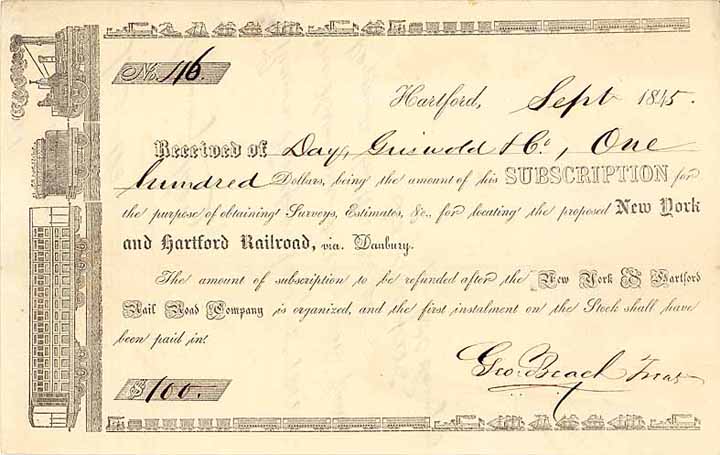 No. 116.
Hartford, Sept 1845.
Received of Day, Griswold & Co, One
hundred Dollars, being the amount of his SUBSCRIPTION for
the purpose of obtaining Surveys, Estimates, &c., for locating the proposed New York
and Hartford Railroad, via. Danbury.
The amount of subscription to be refunded after the New York & Hartford
Rail Road Company is organized, and the first instalment on the Stock shall have
been paid in.
Geo. Beach Treas
$100.